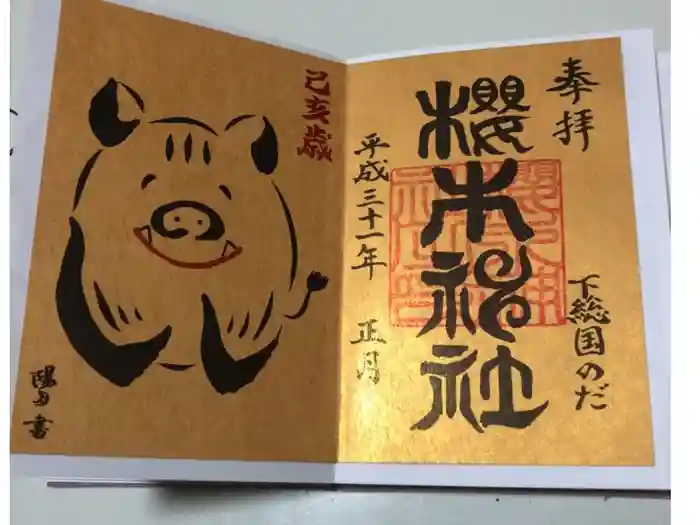 奉拝
下総国のだ
櫻木神社
平成三十一年 正月
己亥歳
陽子書